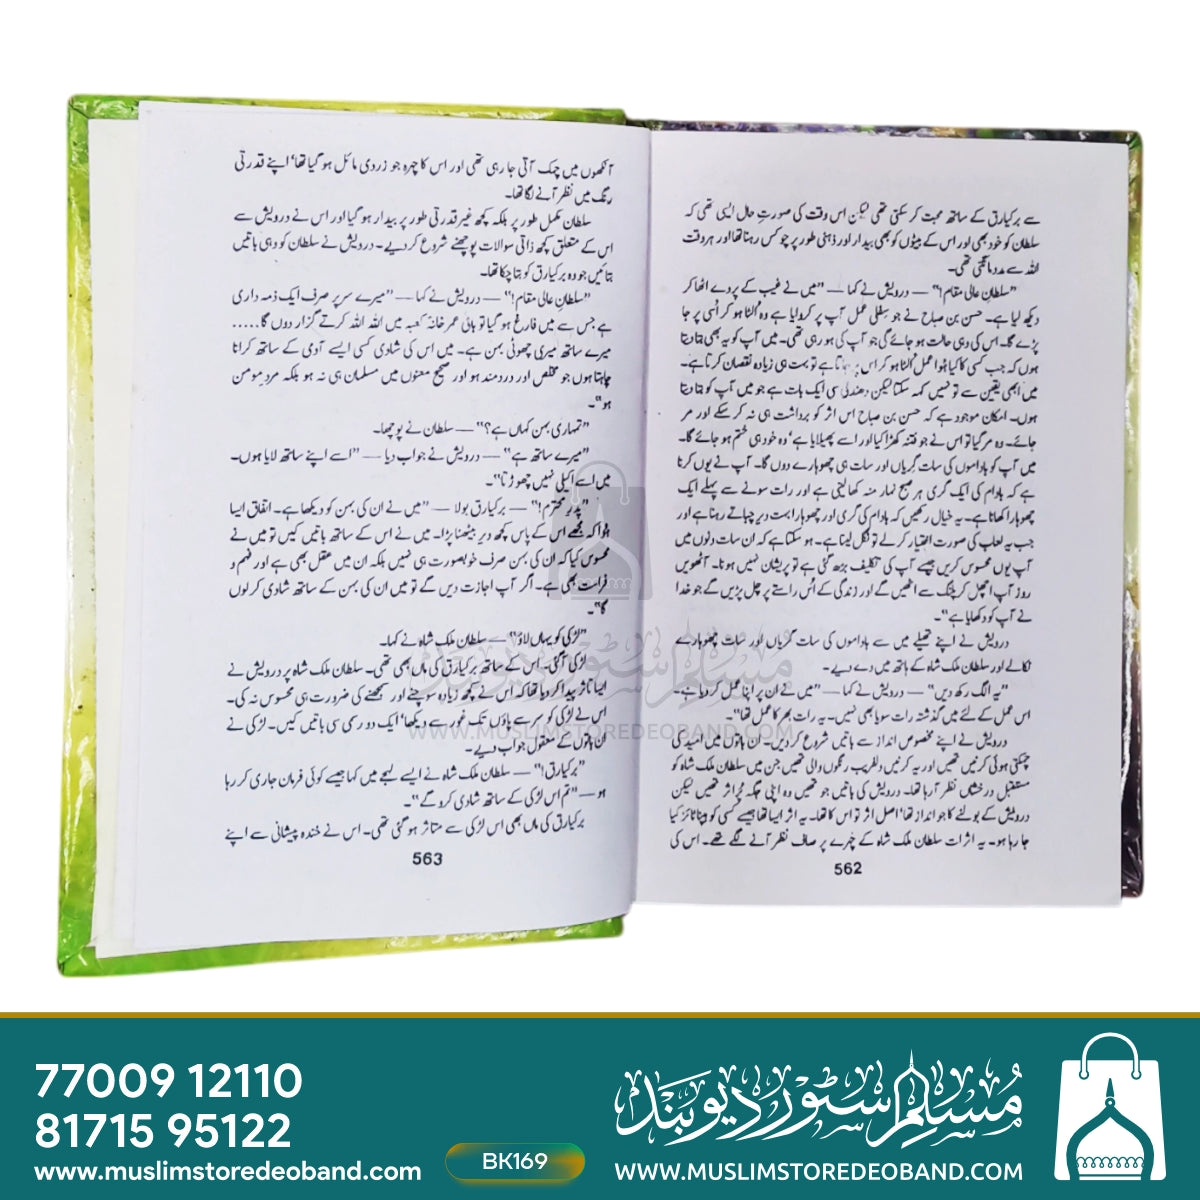 سے برکیارق کے ساتھ محبت کر سکتی تھی لیکن اس وقت کی صورتِ حال ایسی تھی کہ
سلطان کو خود بھی اور اس کے بیٹوں کو بھی بیدار اور ذہنی طور پر چوکس رہنا تھا اور ہر وقت
اللہ سے مدد مانگنی تھی۔
”سلطانِ عالی مقام!“ — درویش نے کہا — ”میں نے غیب کے پردے اٹھا کر
دیکھ لیا ہے۔ حسن بن صباح نے جو سفلی عمل آپ پر کروایا ہے وہ اُلٹا ہو کر اُسی پر جا
پڑے گا۔ اس کی وہی حالت ہو جائے گی جو آپ کی ہو رہی تھی۔ میں آپ کو یہ بھی بتا دیتا
ہوں کہ جب کسی کا کیا ہُوا عمل اُلٹا ہو کر اس پر جاتا ہے تو بہت ہی زیادہ نقصان کرتا ہے۔
میں ابھی یقین سے تو نہیں کہہ سکتا لیکن دھندلی سی ایک بات ہے جو میں آپ کو بتا دیتا
ہوں۔ امکان موجود ہے کہ حسن بن صباح اس اثر کو برداشت ہی نہ کر سکے اور مر
جائے۔ وہ مر گیا تو اس نے جو فتنہ کھڑا کیا اور اسے پھیلایا ہے‘ وہ خود ہی ختم ہو جائے گا۔
میں آپ کو باداموں کی سات گریاں اور سات ہی چھوہارے دوں گا۔ آپ نے یوں کرنا
ہے کہ بادام کی ایک گری ہر صبح نہار منہ کھا لینی ہے اور رات سونے سے پہلے ایک
چھوہارا کھانا ہے۔ یہ خیال رکھیں کہ بادام کی گری اور چھوہارا بہت دیر چباتے رہنا ہے اور
جب یہ لعاب کی صورت اختیار کر لے تو نگل لینا ہے۔ ہو سکتا ہے کہ ان سات دنوں میں
آپ یوں محسوس کریں جیسے آپ کی تکلیف بڑھ گئی ہے تو پریشان نہیں ہونا۔ آٹھویں
روز آپ اچھل کر پلنگ سے اٹھیں گے اور زندگی کے اُس راستے پر چل پڑیں گے جو خدا
نے آپ کو دکھایا ہے“۔
درویش نے اپنے تھیلے میں سے باداموں کی سات گریاں اور سات چھوہارے
نکالے اور سلطان ملک شاہ کے ہاتھ میں دے دیے۔
”یہ الگ رکھ دیں“ — درویش نے کہا — ”میں نے ان پر اپنا عمل کر دیا ہے۔
اس عمل کے لئے میں گذشتہ رات سویا بھی نہیں۔ یہ رات بھر کا عمل تھا“۔
درویش نے اپنے مخصوص انداز سے باتیں شروع کر دیں۔ ان باتوں میں امید کی
چمکتی ہوئی کرنیں تھیں اور یہ کرنیں دلفریب رنگوں والی تھیں جن میں سلطان ملک شاہ کو
مستقبل درخشاں نظر آ رہا تھا۔ درویش کی باتیں جو تھیں وہ اپنی جگہ پُر اثر تھیں لیکن
درویش کے بولنے کا جو انداز تھا‘ اصل اثر تو اس کا تھا۔ یہ اثر ایسا تھا جیسے کسی کو ہپناٹائز کیا
جا رہا ہو۔ یہ اثرات سلطان ملک شاہ کے چہرے پر صاف نظر آنے لگے تھے۔ اس کی
562
آنکھوں میں چمک آتی جا رہی تھی اور اس کا چہرہ جو زردی مائل ہو گیا تھا‘ اپنے قدرتی
رنگ میں نظر آنے لگا تھا۔
سلطان مکمل طور پر بلکہ کچھ غیر قدرتی طور پر بیدار ہو گیا اور اس نے درویش سے
اس کے متعلق کچھ ذاتی سوالات پوچھنے شروع کر دیے۔ درویش نے سلطان کو وہی باتیں
بتائیں جو وہ برکیارق کو بتا چکا تھا۔
”سلطانِ عالی مقام!“ — درویش نے کہا — ”میرے سر پر صرف ایک ذمہ داری
ہے جس سے میں فارغ ہو گیا تو باقی عمر خانہ کعبہ میں اللہ اللہ کرتے گزار دوں گا.....
میرے ساتھ میری چھوٹی بہن ہے۔ میں اس کی شادی کسی ایسے آدمی کے ساتھ کرانا
چاہتا ہوں جو مخلص اور دردمند ہو اور صحیح معنوں میں مسلمان ہی نہ ہو بلکہ مردِ مومن
ہو“۔
”تمہاری بہن کہاں ہے؟“ — سلطان نے پوچھا۔
”میرے ساتھ ہے“ — درویش نے جواب دیا — ”اسے اپنے ساتھ لایا ہوں۔
میں اسے اکیلی نہیں چھوڑتا“۔
”پدرِ محترم!“ — برکیارق بولا — ”میں نے ان کی بہن کو دیکھا ہے۔ اتفاق ایسا
ہُوا کہ مجھے اس کے پاس کچھ دیر بیٹھنا پڑا۔ میں نے اس کے ساتھ باتیں کیں تو میں نے
محسوس کیا کہ ان کی بہن صرف خوبصورت ہی نہیں بلکہ ان میں عقل بھی ہے اور فہم و
فراست بھی ہے۔ اگر آپ اجازت دیں گے تو میں ان کی بہن کے ساتھ شادی کر لوں
گا“۔
”لڑکی کو یہاں لاؤ“ — سلطان ملک شاہ نے کہا۔
لڑکی آ گئی۔ اس کے ساتھ برکیارق کی ماں بھی تھی۔ سلطان ملک شاہ پر درویش نے
ایسا تاثر پیدا کر دیا تھا کہ اس نے کچھ زیادہ سوچنے اور سمجھنے کی ضرورت ہی محسوس نہ کی۔
اس نے لڑکی کو سر سے پاؤں تک غور سے دیکھا‘ ایک دو رسمی سی باتیں کیں۔ لڑکی نے
ان باتوں کے معقول جواب دیے۔
”برکیارق!“ — سلطان ملک شاہ نے ایسے لہجے میں کہا جیسے کوئی فرمان جاری کر رہا
ہو — ”تم اس لڑکی کے ساتھ شادی کرو گے“۔
برکیارق کی ماں بھی اس لڑکی سے متاثر ہو گئی تھی۔ اس نے خندہ پیشانی سے اپنے
563
مسلم سٹور دیوبند
WWW.MUSLIMSTOREDEOBAND.COM
77009 12110
81715 95122
www.muslimstoredeoband.com
BK169
مسلم سٹور دیوبند
www.MUSLIMSTOREDEOBAND.COM